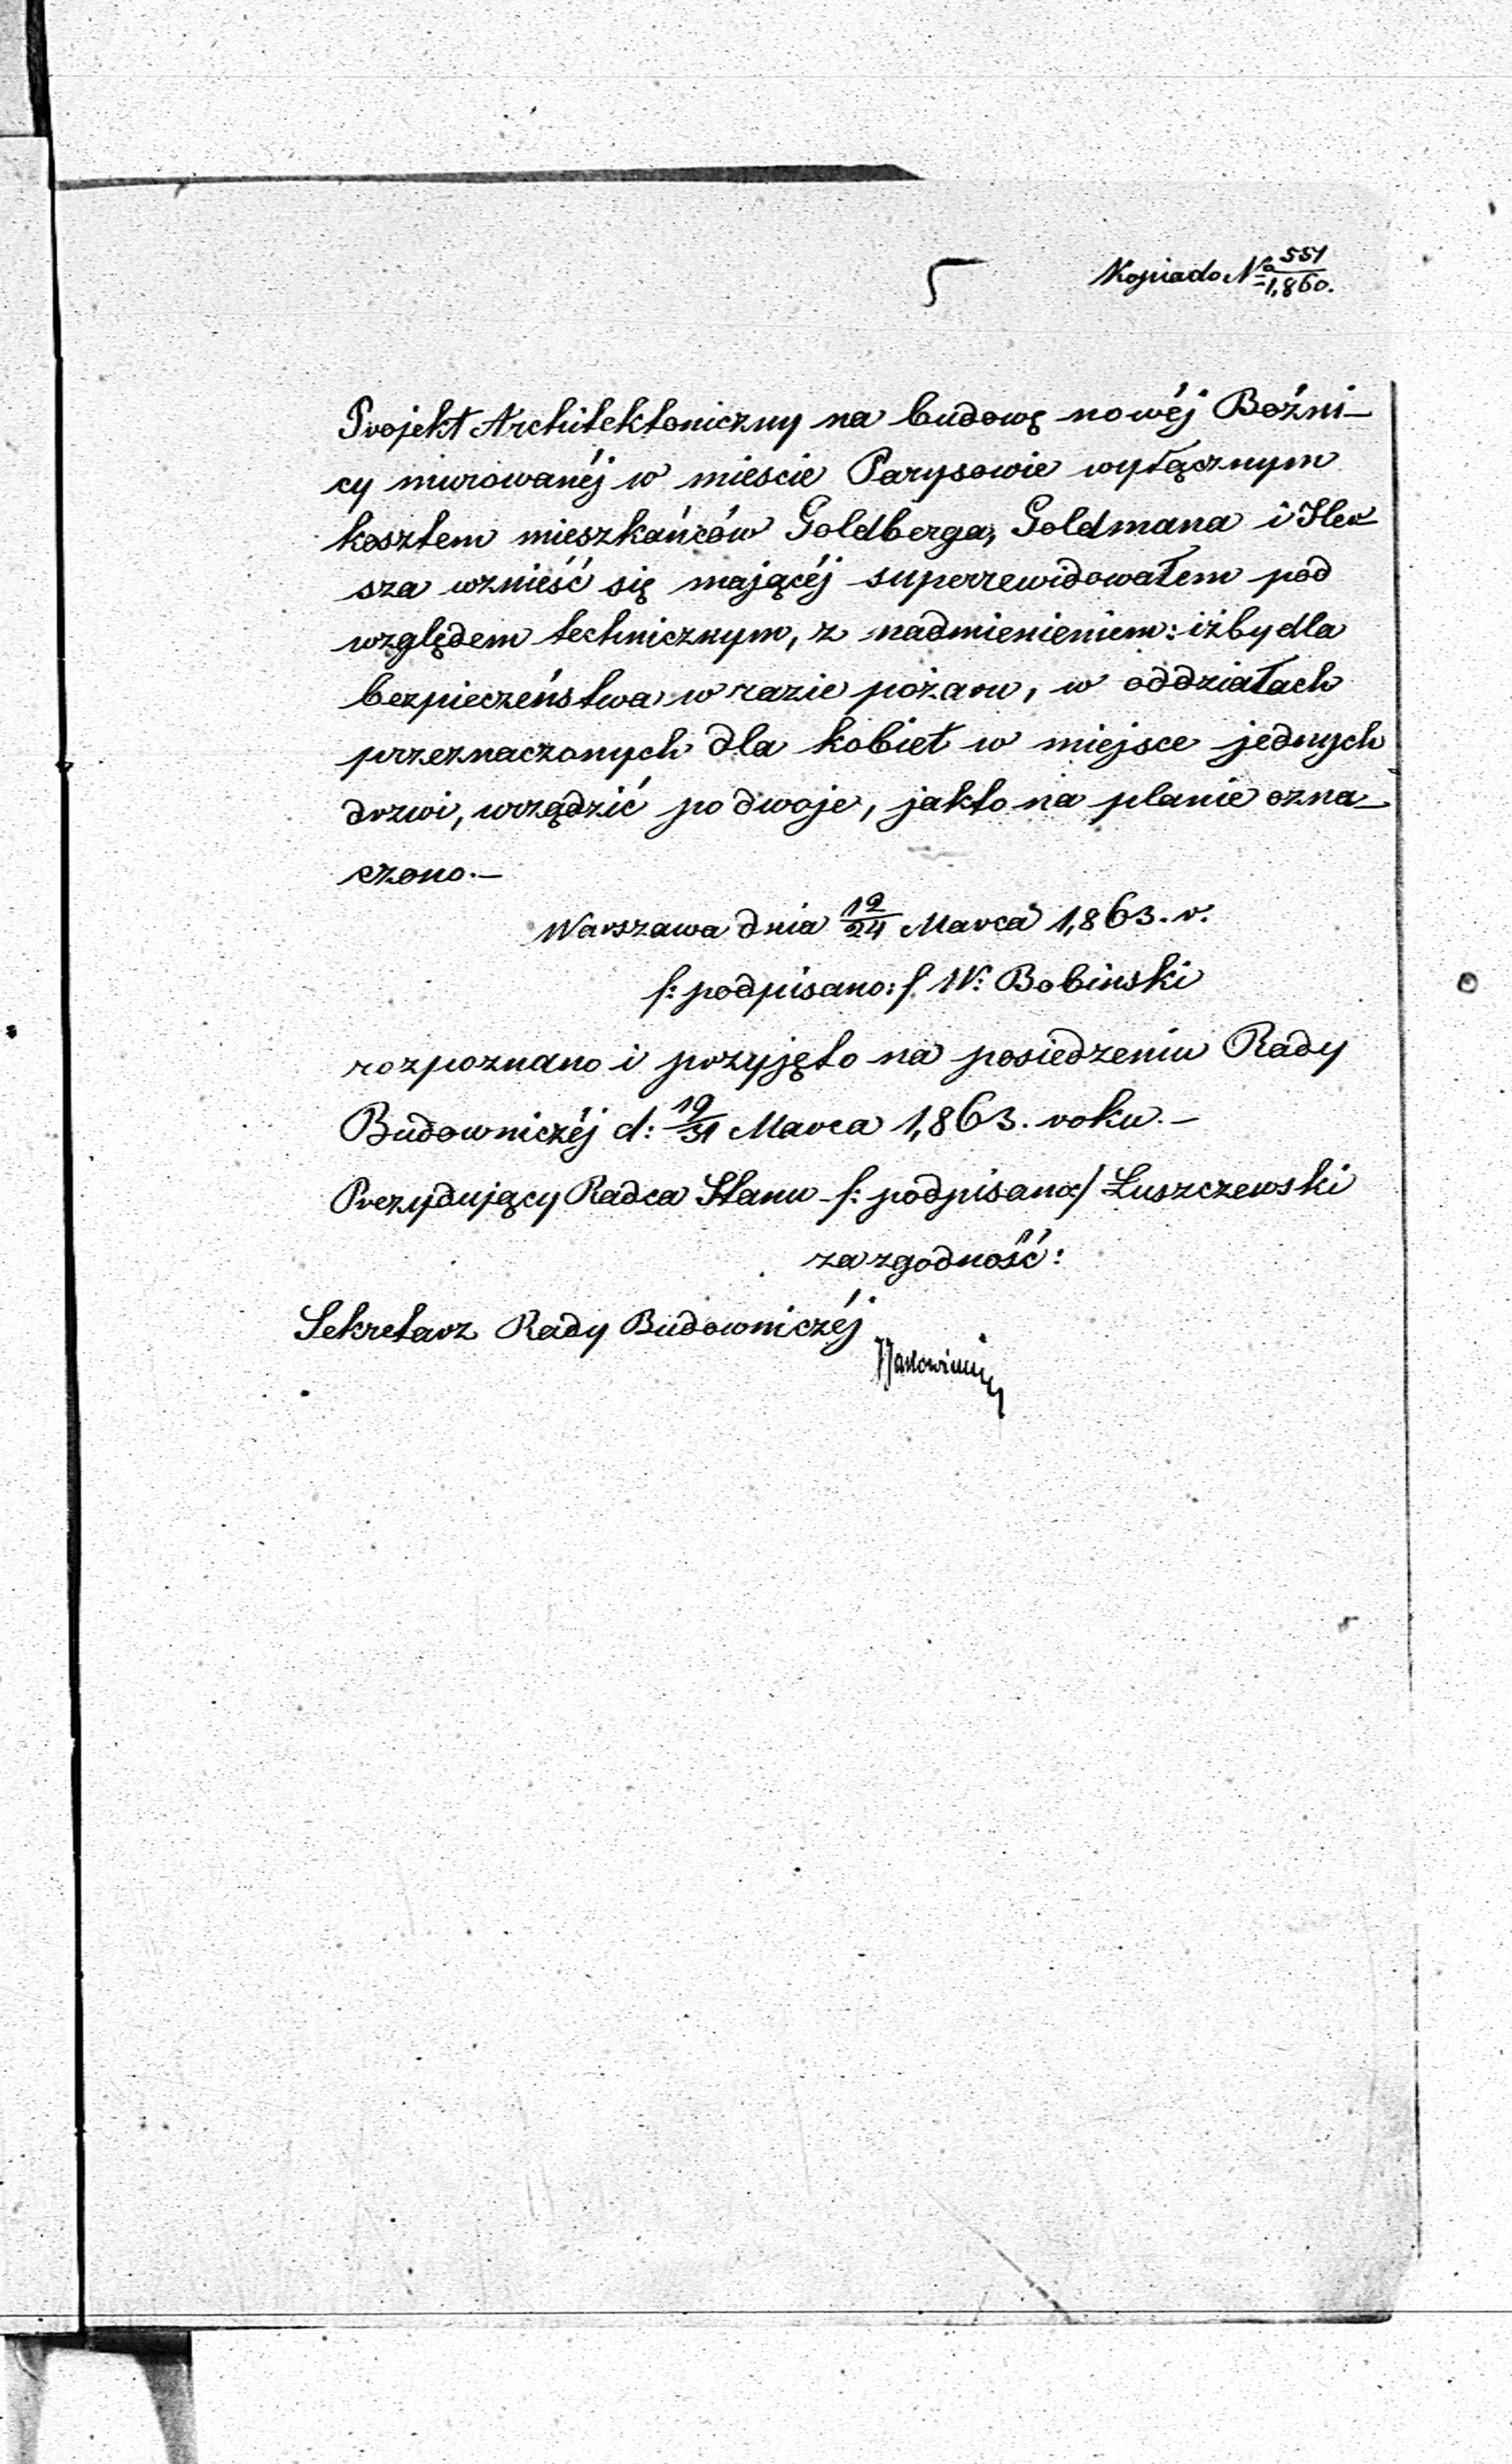 5
Kopia do No 551/1,860.
Projekt Architektoniczny na budowę nowéj Bożni-
cy murowanéj w mieście Parysowie wyłącznym
kosztem mieszkańców Goldberga, Goldmana i Her-
sza wznieść się mającéj superrewidowałem pod
względem technicznym, z nadmienieniem: iżby dla
bezpieczeństwa w razie pożaru, w oddziałach
przeznaczonych dla kobiet w miejsce jednych
drzwi, urządzić po dwoje, jak to na planie ozna-
czono.—
Warszawa dnia 12/24 Marca 1,863. r.
/: podpisano: / W: Bobinski
rozpoznano i przyjęto na posiedzeniu Rady
Budowniczéj d: 19/31 Marca 1,863. roku.—
Prezydujący Radca Stanu /: podpisano/ Łuszczewski
za zgodność:
Sekretarz Rady Budowniczéj